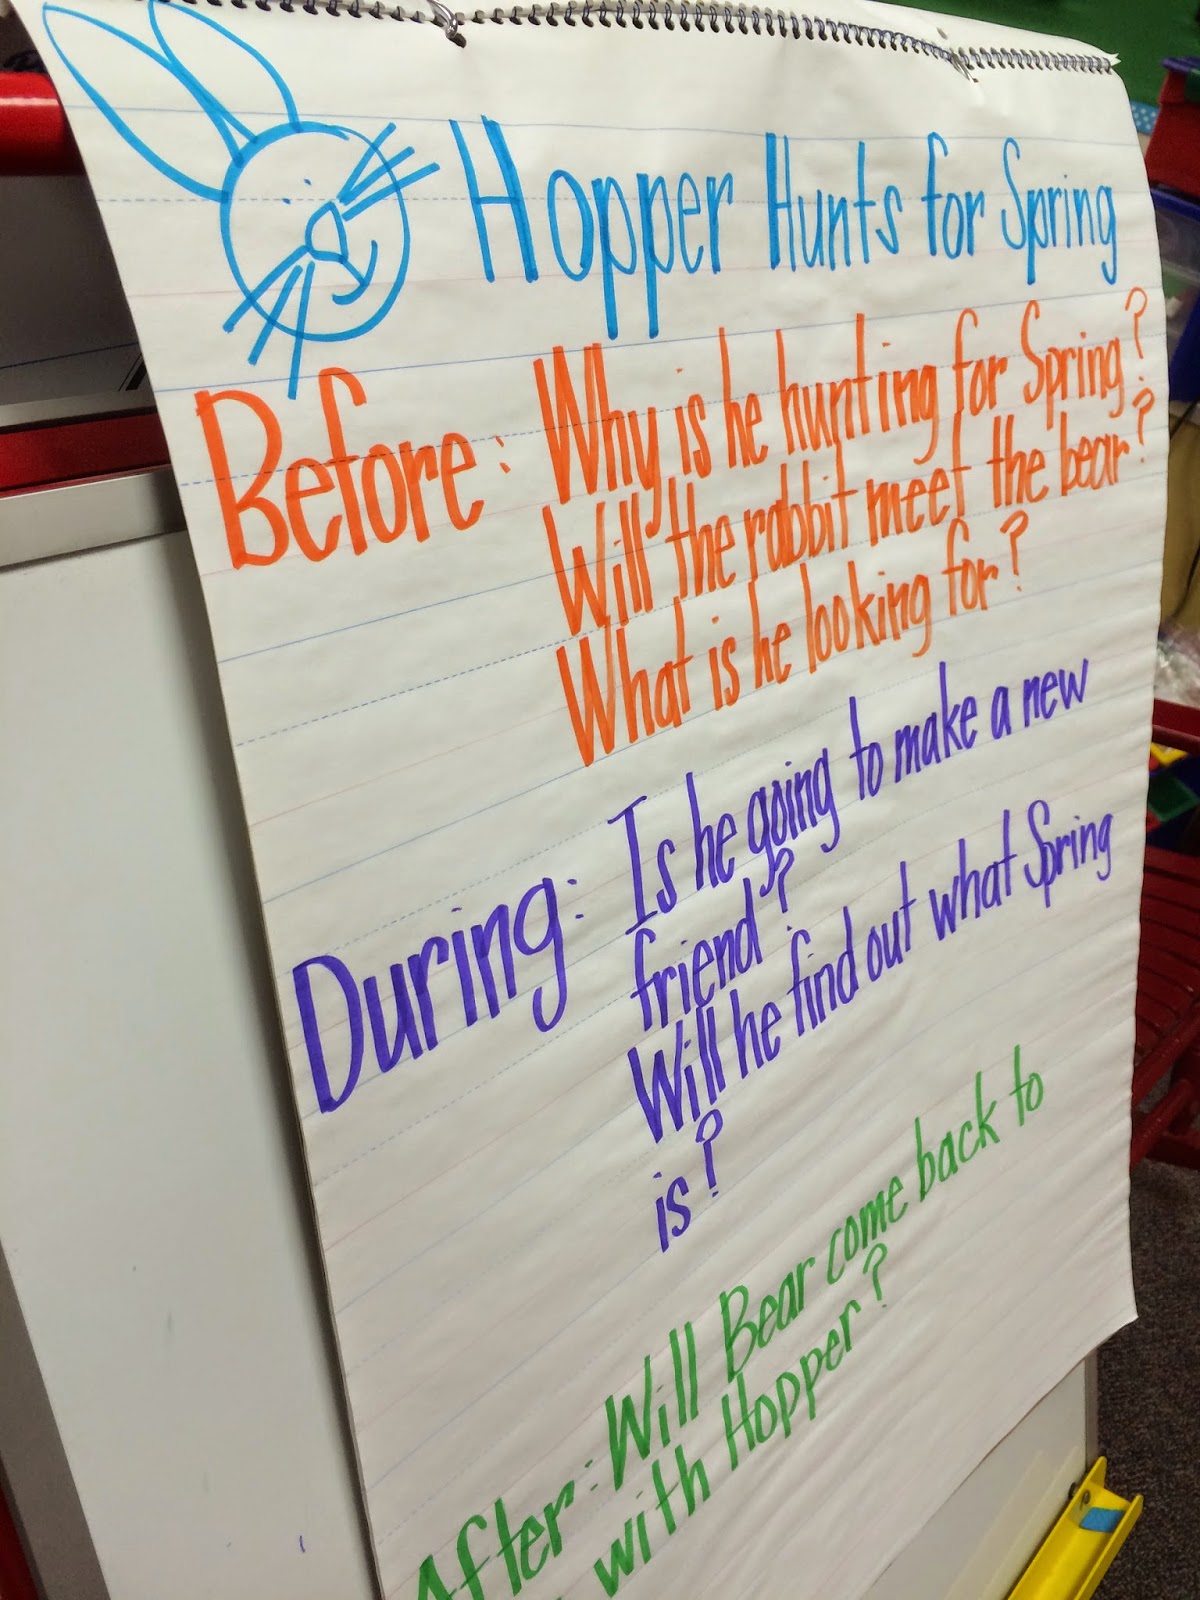 Hopper Hunts for Spring
Before: Why is he hunting for Spring?
Will the rabbit meet the bear?
What is he looking for?
During: Is he going to make a new
friend?
Will he find out what Spring
is?
After: Will Bear come back to
with Hopper?